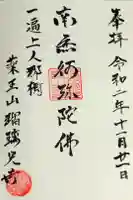 奉拝 令和二年十一月廿一日
南無阿弥陀佛
一遍上人那桐
薬王山瑠璃光寺